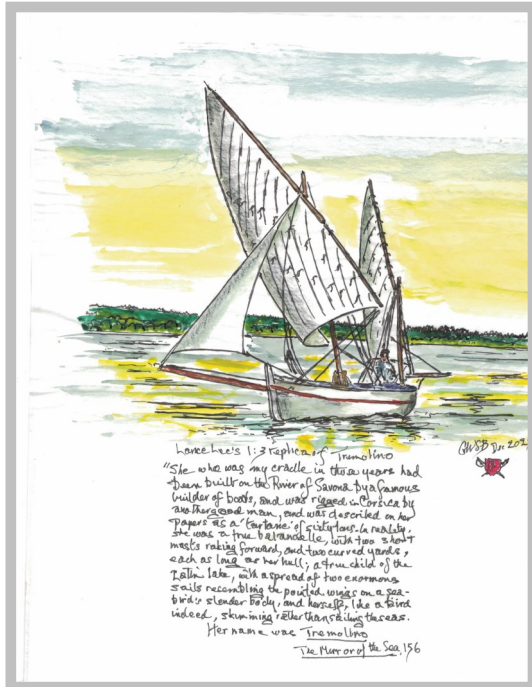 Lance Lee's 1:3 replica of Tremolino
GWSB Dec 202
"She who was my cradle in those years had
been built on the River of Savona by a famous
builder of boats, and was rigged in Corsica by
another good man, and was described on her
papers as a 'tartane' of sixty tons. In reality,
she was a true balancelle, with two short
masts raking forward, and two curved yards,
each as long as her hull; a true child of the
Latin lake, with a spread of two enormous
sails resembling the pointed wings on a sea-
bird's slender body, and herself, like a bird
indeed, skimming rather than sailing the seas.
Her name was Tremolino
The Mirror of the Sea, 156